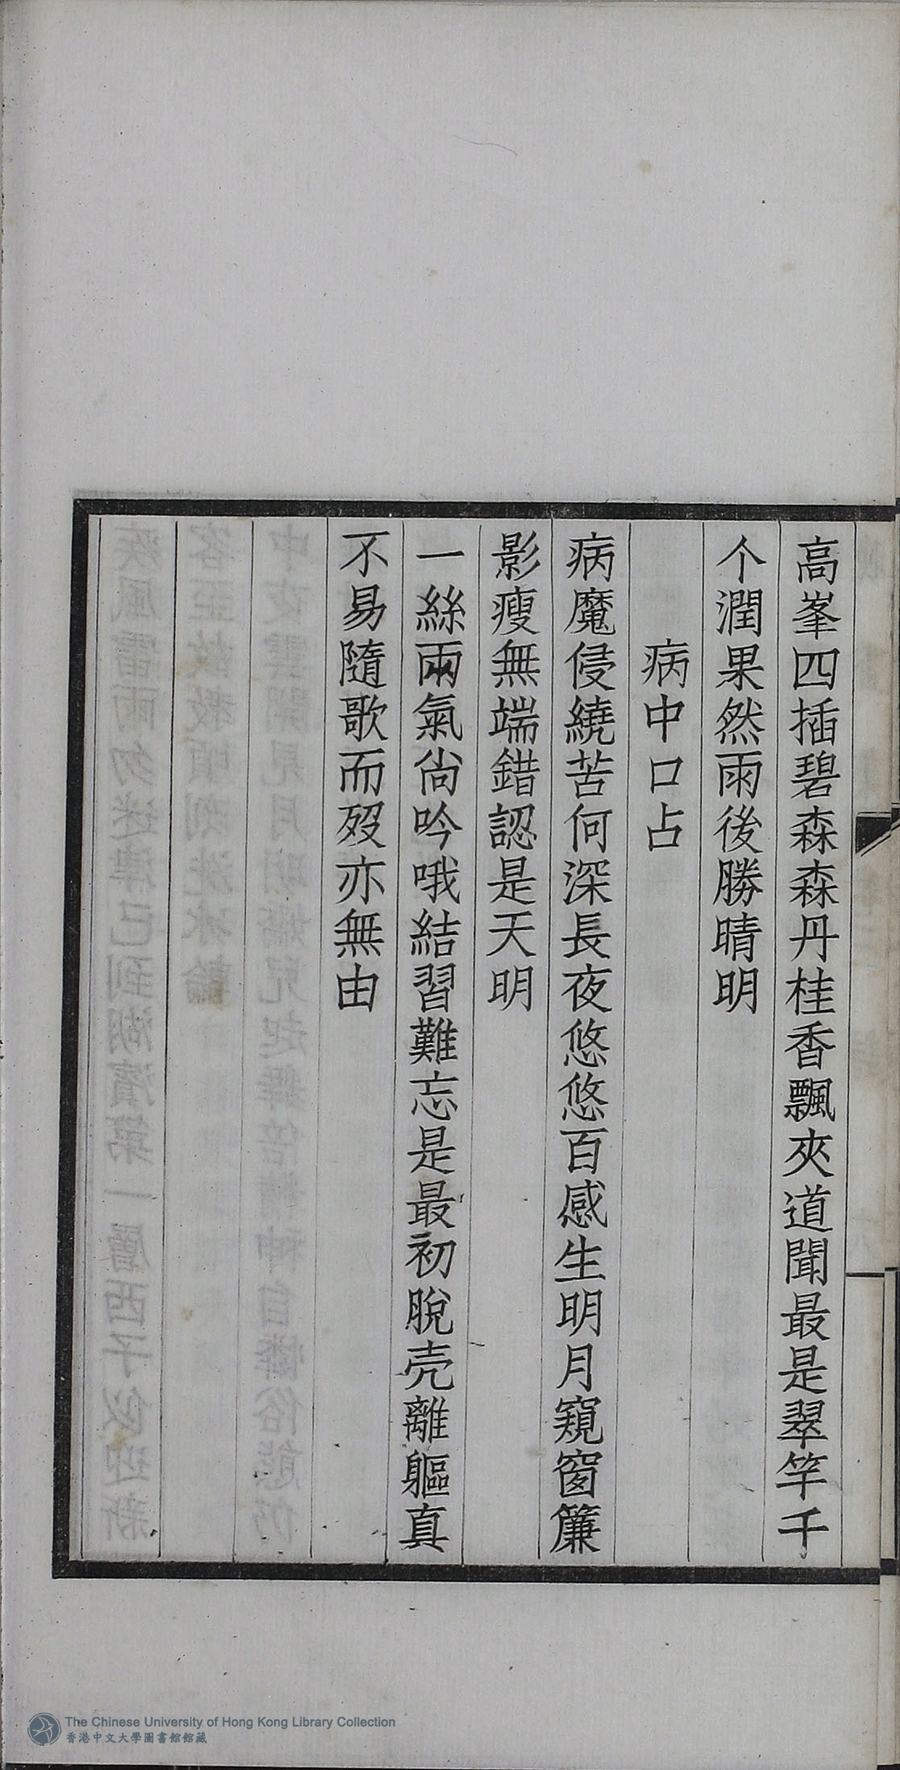 高峯四插碧森森丹桂香飄夾道聞最是翠竿千
个潤果然雨後勝晴明
病中口占
病魔侵繞苦何深長夜悠悠百感生明月窺窗簾
影瘦無端錯認是天明
一絲兩氣尙吟哦結習難忘是最初脫壳離軀真
不易隨歌而歿亦無由
The Chinese University of Hong Kong Library Collection
香港中文大學圖書館館藏